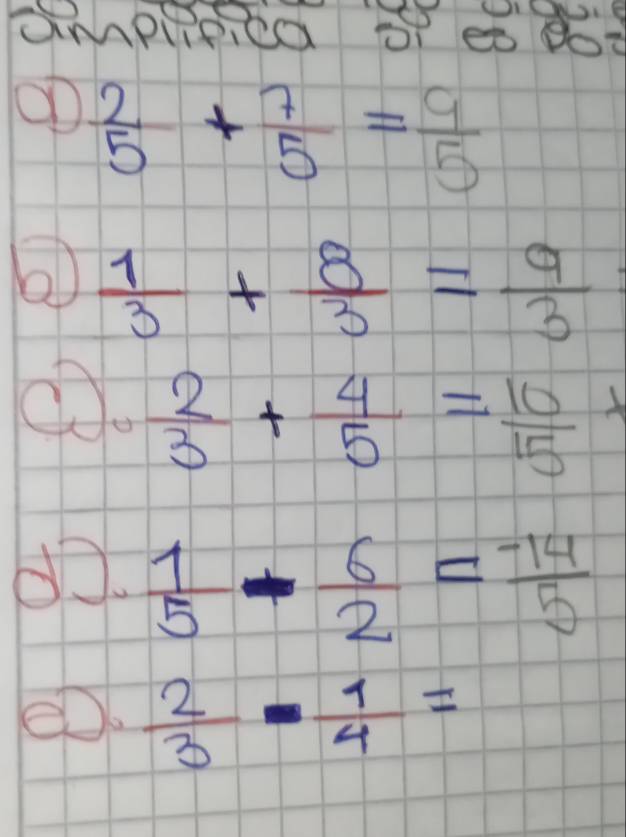 Simplifica si es po
a) 2/5 + 7/5 = 9/5
b) 1/3 + 8/3 = 9/3 =
c). 2/3 + 4/5 = 10/15 +
d). 1/5 - 6/2 = -14/5
e). 2/3 - 1/4 =